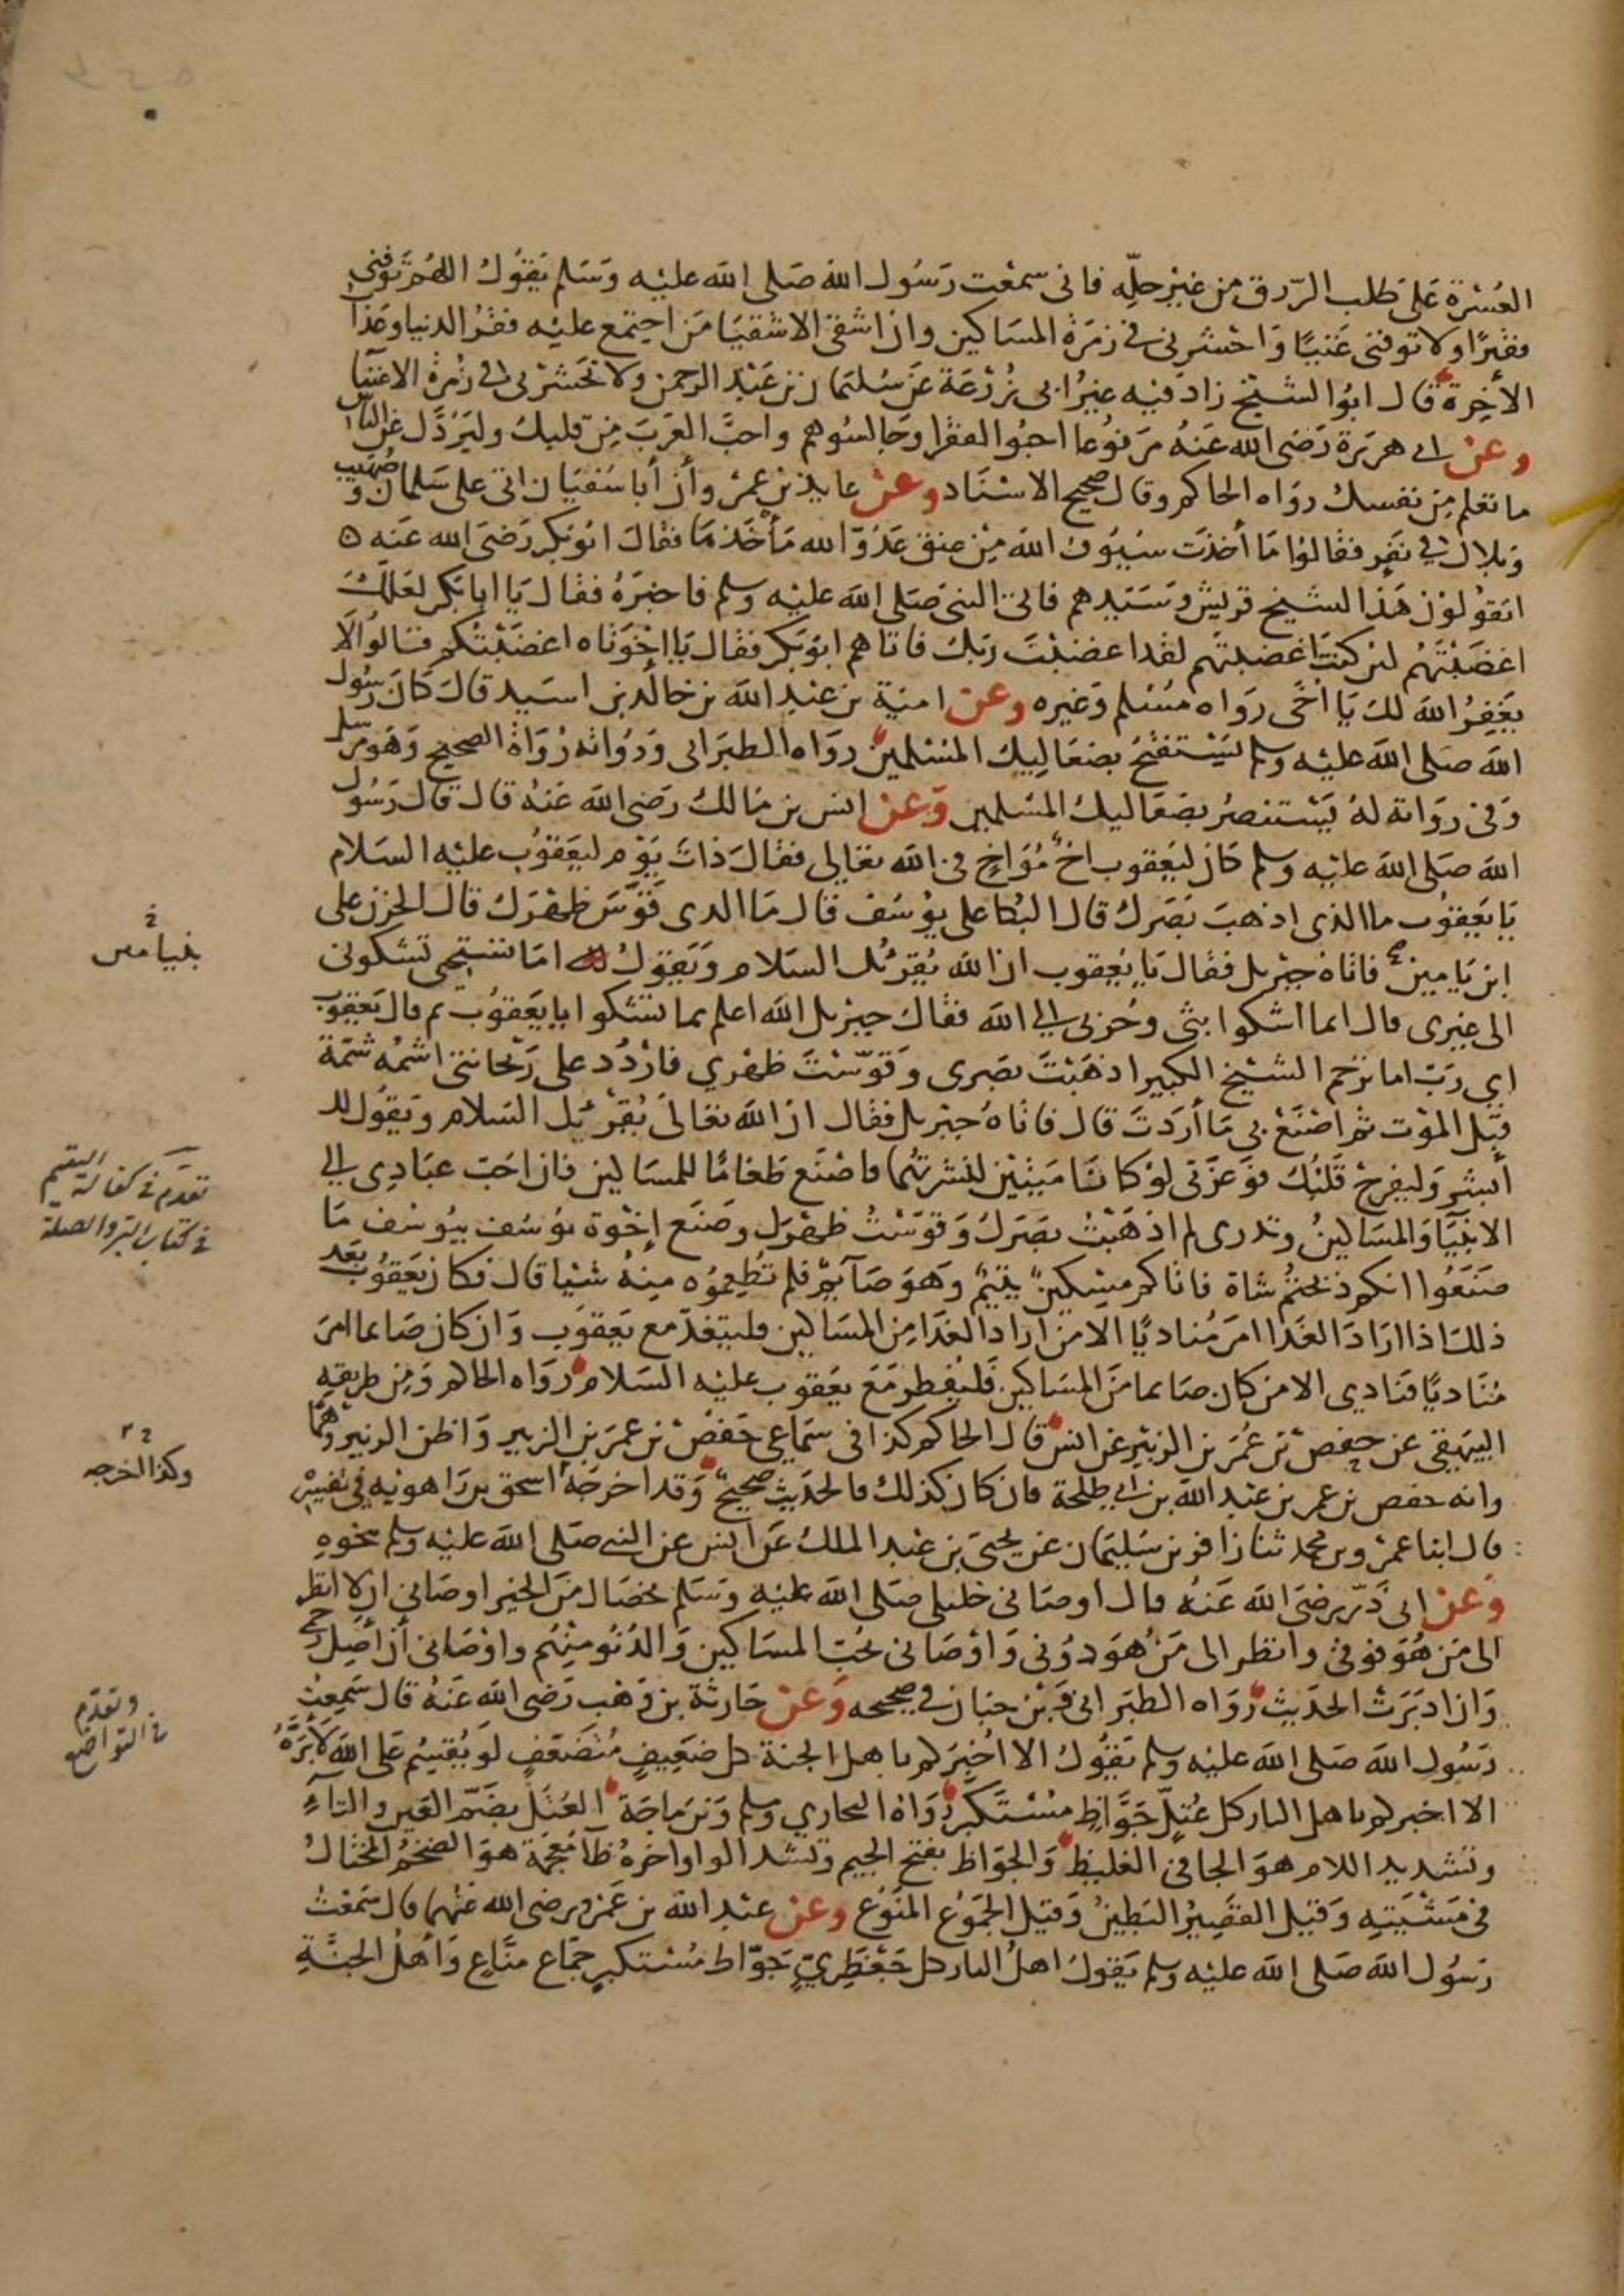 العُسْرة عَلى طلب الرّزق من غيْر حلّه فانى سمعْت رَسُول الله صَلى الله عليْه وَسَلم يَقوُلُ اللهُمّ توَفنى
فقيْرًا ولا توفنى غَنيًا وَاحْشرنى فى زمرَة المسَاكين وان اشقى الاشقيَا مَن اجتمع عليْه فقرُ الدنيا وعَذابُ
الأخِرة قال ابوُ الشيْخ زاد فيْه غيرُ ابى زُرْعَة عَن سُليمَان بن عَبْد الرحمن ولا تحَشرنى فى زُمرة الاغنيَا
وعن ابى هريَرة رَضى الله عَنهُ مرَفوُعا احبوُا الفقرا وَجَالسُوهم واحبَّ العَربَ مِن قلبك وليَرُدَّك عَن الناس
ما تعْلم مِن نفسك روَاه الحاكم وقال صحيح الاسنَاد وعن عايذ بن عمْرو أن أبا سُفيَان اتى على سَلمان وَصُهَيب
وَبلال فى نَفرٍ فقالوُا مَا أخذت سيُوف الله مِنْ عنق عَدُوّ الله مَأخَذهَا فقالَ ابوُ بكر رَضَى الله عَنه ٥
اتقوُلوُن هَذا لشيْخ قريش وسَيّدهم فاتى النبى صَلى الله عليْه وسلم فاخبَرهُ فقال يَا ابا بَكر لعَلكَ
اغضَبْتَهُم لئن كنتَ اغضبتهم لقد اغضبْتَ ربَك فاتاهم ابوُ بَكر فقال يَا اخْوَتاه اغضَبْتكم قالوُا لَا
يغَفِرُ الله لكَ يَا أخَى روَاه مسُلم وَغيره وعن امية بن عبْد الله بن خالد بن اسيَد قالَ كَانَ رسُول
الله صَلى الله عليْه وسلم يَسْتفتحُ بصَعَاليك المسْلمين روَاه الطبرَانى وَرُوَاته رُوَاة الصحيح وَهوَ مرسَل
وَفى روَاية لهُ يَسْتنصرُ بصَعَاليك المسْلمين وَعن انس بن مَالك رَضى الله عَنهُ قال قال رَسُول
الله صَلى الله عليْه وسلم كان ليَعقوب اخٌ مُوَاخٍ فى الله تعَالى فقالَ ذاتَ يَوْم ليَعقوُب عليْه السَلام
يَا يَعقوُب ما الذى اذهبَ بَصَرك قال البُكا على يوُسُف قال مَا الذى قوَّسَ ظهْرَك قال الحزن على
ابن يَامين فاتاهُ جبْريل فقال يَا يَعقوب ان الله يُقرئك السَلام وَيَقوُل لك امَا تسْتحى تشكونى
الى غيرى قال انما اشكوا بثى وحُزنى الى الله فقالَ جبْريل الله اعلم بما تشكوا يا يَعقوُب ثم قال يَعقوُب
اى رَبّ اما ترَحم الشيْخ الكبير اذهَبْتَ بصَرى وَقوّسْتَ ظهْري فارْدُد على رَيْحانتى اشمُه شمّة
قبْل الموْت ثم اصْنَعْ بى مَا أرَدتَ قال فاتاهُ جبْريل فقال ان الله تعَالى يُقرْئك السَلام وَيقوُل لك
أبشر وَليفرحْ قَلبُك فوَعزّتى لوْ كانا مَيتيْن لنشرتهُما فاصْنَع طعَامًا للمسَاكين فان احَبّ عبَادِى الى
الانبيَا وَالمسَاكينُ وتدرى لم اذهَبْتُ بصَرَك وَقوَسْتُ ظهْرَك وصَنَع إخْوة يوُسُف بيوُسُف مَا
صَنَعُوا انكم ذبحتُم شاة فاتاكم مسْكينٌ يتيْمٌ وَهوَ صَآئمٌ فلم تُطعِمُوُه مِنهُ شيْا قال فكان يَعقوُب بَعْد
ذلكَ اذا ارَادَ الغدَا امرَ مُناديًا الا من ارَادَ الغدَا مِن المسَاكين فليتغدّ مع يَعقوُب وَان كان صَايما امرَ
مُنَاديًا فنَادى الا من كان صَايما منَ المسَاكين فَليُفطر مَعَ يَعقوب عليْه السَلام روَاه الحاكم وَمِن طريقهِ
البيهَقى عَن حفص بن عُمَر بن الزبيْر عَن انس قال الحاكم كذا فى سَماعى حَفص بن عمَر بن الزبير وَاظن الزبير وَهمًا
وانه حفص بن عمر بن عبْد الله بن ابى طلحة فان كان كذلك فالحَديث صحيحٌ وَقد اخرجَهُ اسحق بن رَاهويْه فى تفسيْره
قال انبا عمْرو بن محمد ثنا زافر بن سُليمَان عن يحيىَ بن عبْد الملك عَن انس عن النبى صَلى الله عليْه وسلم بنحوهِ
وَعن ابى ذرّ رضَى الله عَنهُ قال اوصَانى خليلى صَلى الله عليْه وَسَلم بخصَال منَ الخيْر اوصَانى ان لا انظر
الى مَن هُوَ فوقى وانظر الى مَن هُوَ دوُنى وَاوْصَانى بحُب المسَاكين وَالدُنوُ مِنْهُم واوْصَانى أن أصِلَ رحمى
وَان ادبَرَتْ الحَديثَ رَوَاه الطبَرانى وَابْن حبَان فى صحيحه وَعن حَارثة بن وَهْب رَضى الله عَنهُ قال سَمِعْتُ
رَسُول الله صَلى الله عليْه وسلم يَقوُل الا اُخبرَكم باهل الجنة كل ضَعِيفٍ مُتضَعّفٍ لو يُقسِمُ عَلى الله لَأَبَرَّهُ
الا اخبركم باهل النار كل عُتلٍّ جَوَّاظٍ مسْتَكبرٍ رَوَاهُ البخاري ومسلم وَابن مَاجَة العُتلُ بضَمّ العَين والتاءِ
وتشديد اللام هوَ الجافى الغليظ وَالجوّاظ بفتح الجيم وتشد الواو اخرهُ ظآ معُجمَة هوَ الضخمُ المختالُ
فى مَشْيَتِهِ وَقيَل القصِيرُ البَطِينُ وَقيَل الجمَوُع المنَوُع وعن عبْد الله بن عَمْرو رضى الله عَنهُما قال سَمعْتُ
رَسُول الله صَلى الله عليْه وسلم يَقوُلُ اهلُ النار كل جَعْظَرِيّ جَوّاظ مُسْتكبرٍ جمّاع منّاعٍ وَأهْلُ الجنّةِ
بنيامين
تقدّم فى كفالة اليتيم
فى كتاب البرّ والصلة
وكذا اخرجه
وتقدّم
فى التواضع